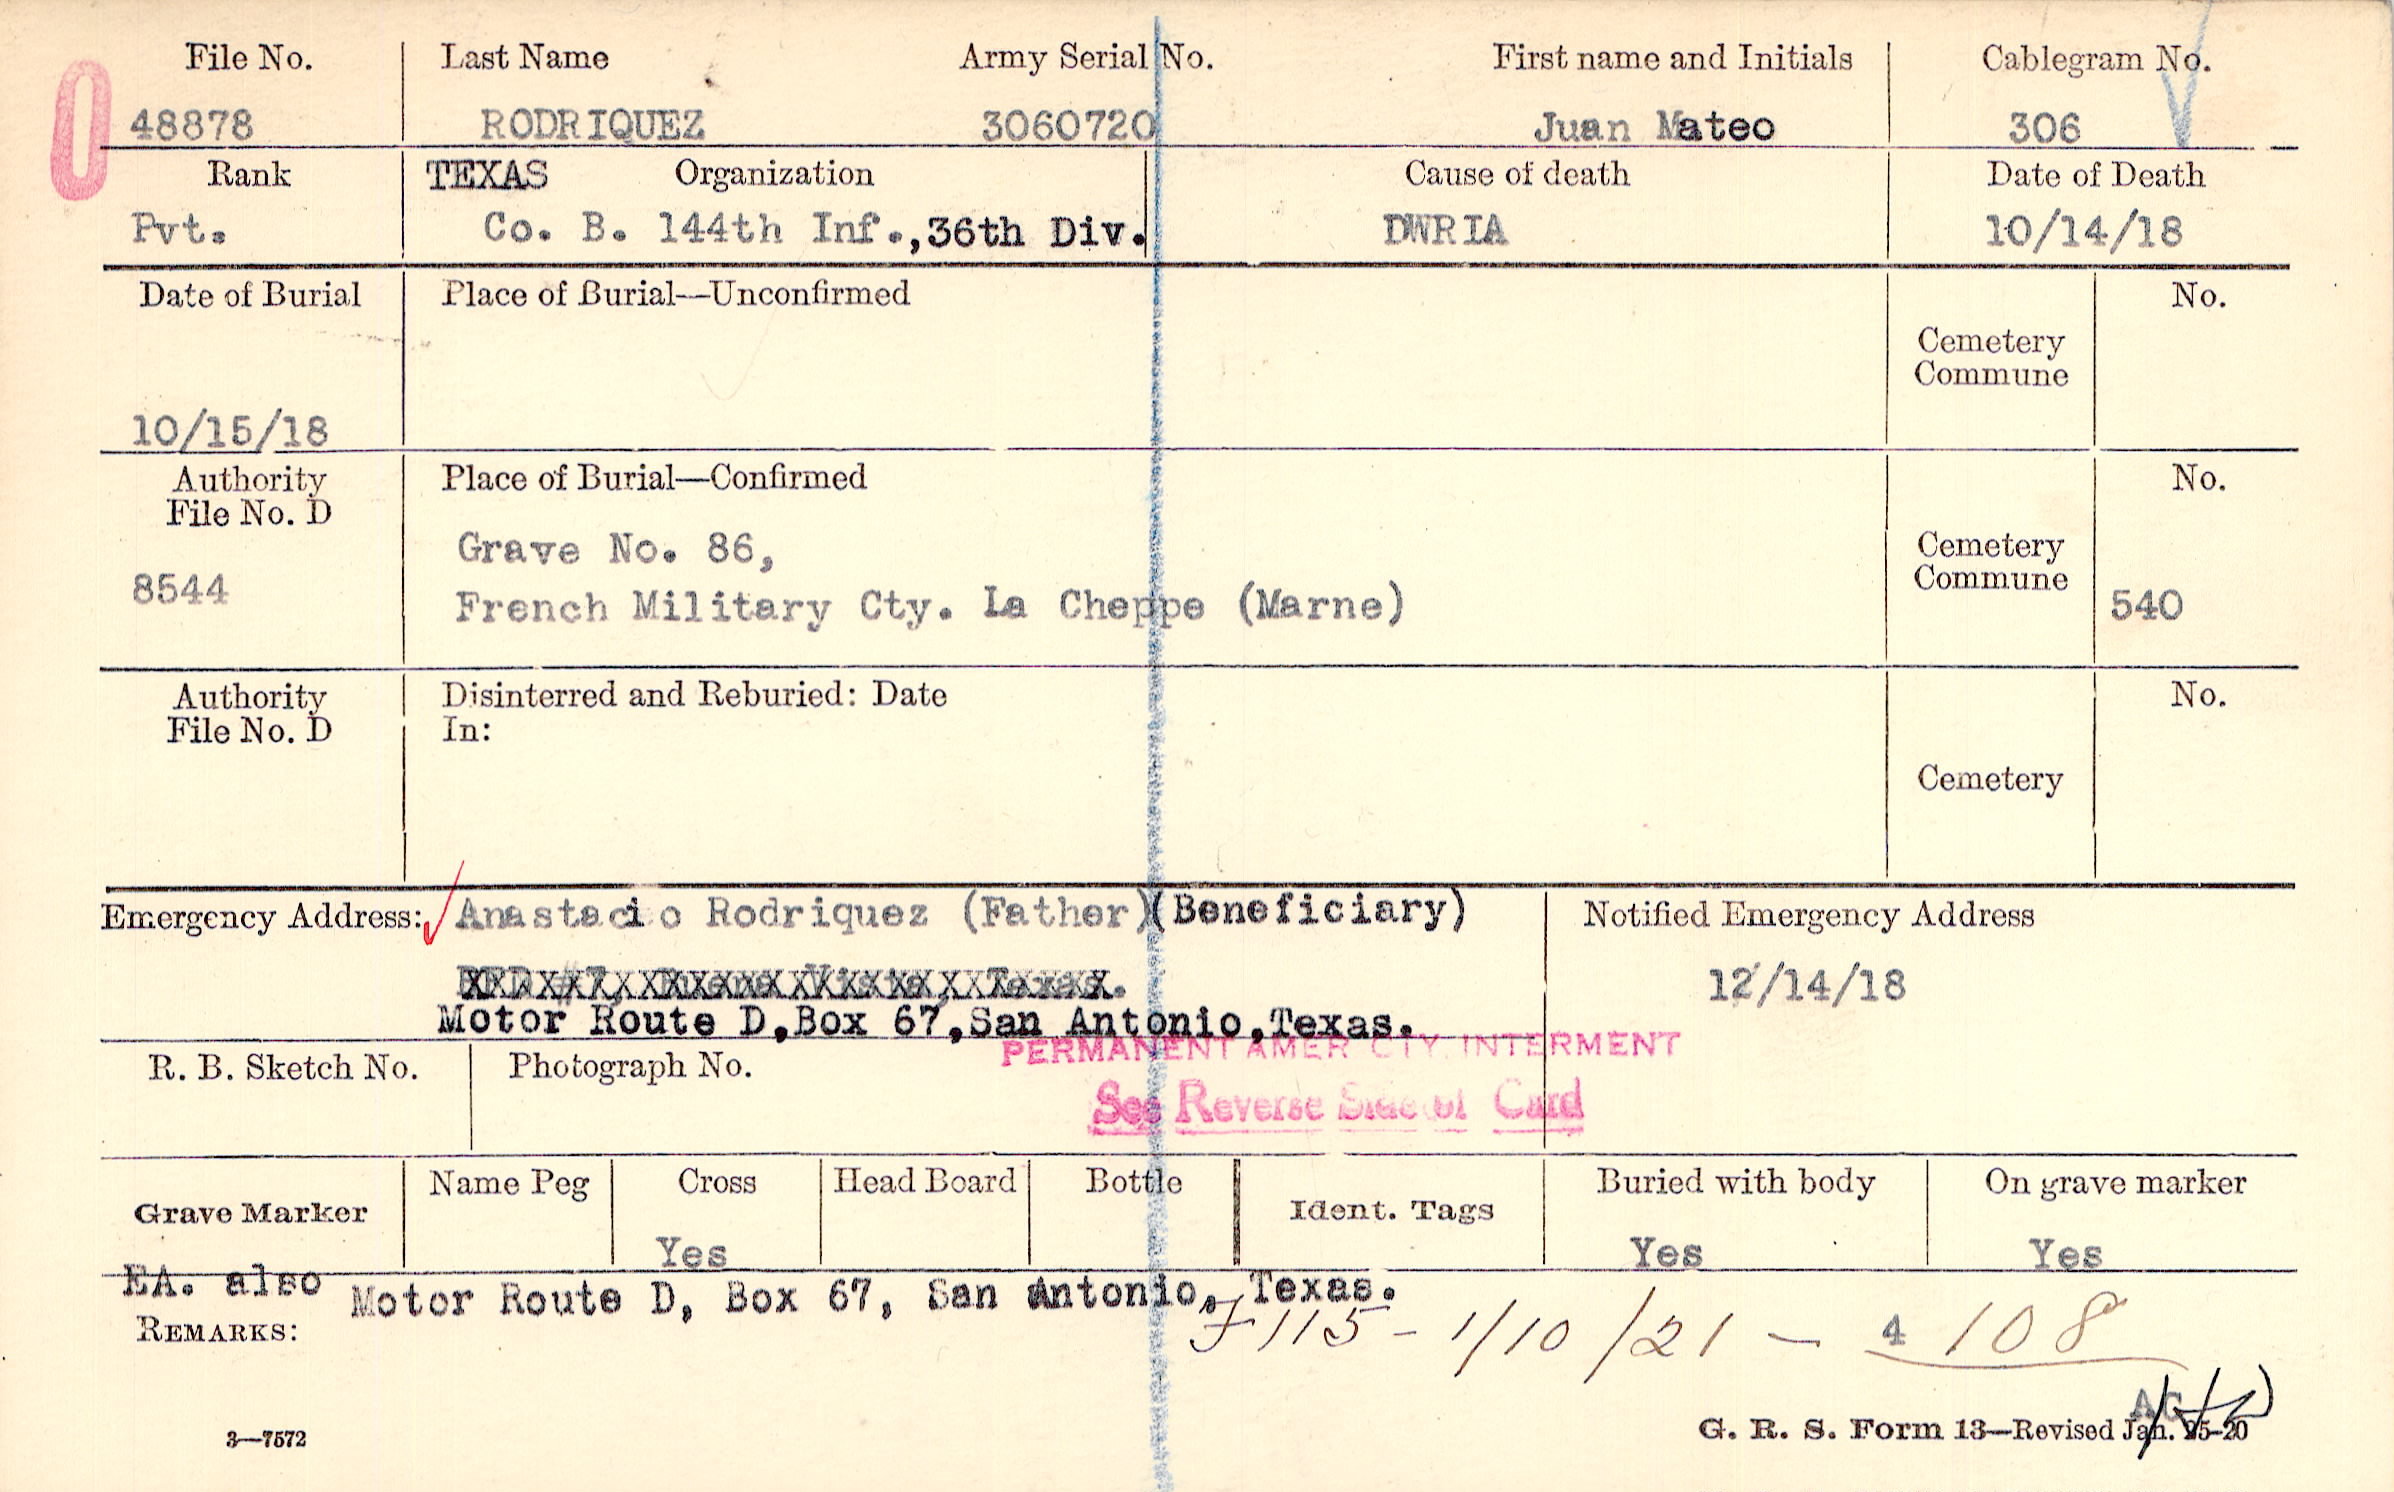 File No. Last Name Army Serial No. First name and Initials Cablegram No.
48878 RODRIQUEZ 3060720 Juan Mateo 306
Rank TEXAS Organization Cause of death Date of Death
Pvt. Co. B. 144th Inf.,36th Div. DWRIA 10/14/18
Date of Burial Place of Burial—Unconfirmed No.
Cemetery
Commune
10/15/18
Authority Place of Burial—Confirmed No.
File No. D
Grave No. 86, Cemetery
Commune
8544 French Military Cty. La Cheppe (Marne) 540
Authority Disinterred and Reburied: Date No.
File No. D In:
Cemetery
Emergency Address: Anastacio Rodriquez (Father)(Beneficiary) Notified Emergency Address
12/14/18
Motor Route D,Box 67,San Antonio,Texas.
PERMANENT AMER CTY. INTERMENT
R. B. Sketch No. Photograph No.
See Reverse Side of Card
Name Peg Cross Head Board Bottle Buried with body On grave marker
Grave Marker Ident. Tags
Yes Yes Yes
EA. also Motor Route D, Box 67, San Antonio, Texas.
REMARKS: F115 - 1/10/21 — 4 108
AG
3—7572 G. R. S. Form 13—Revised Jan. 25-20